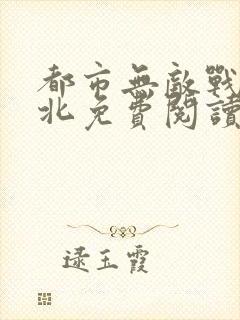 都市無敵戰
北免費閱讀
逯玉霞